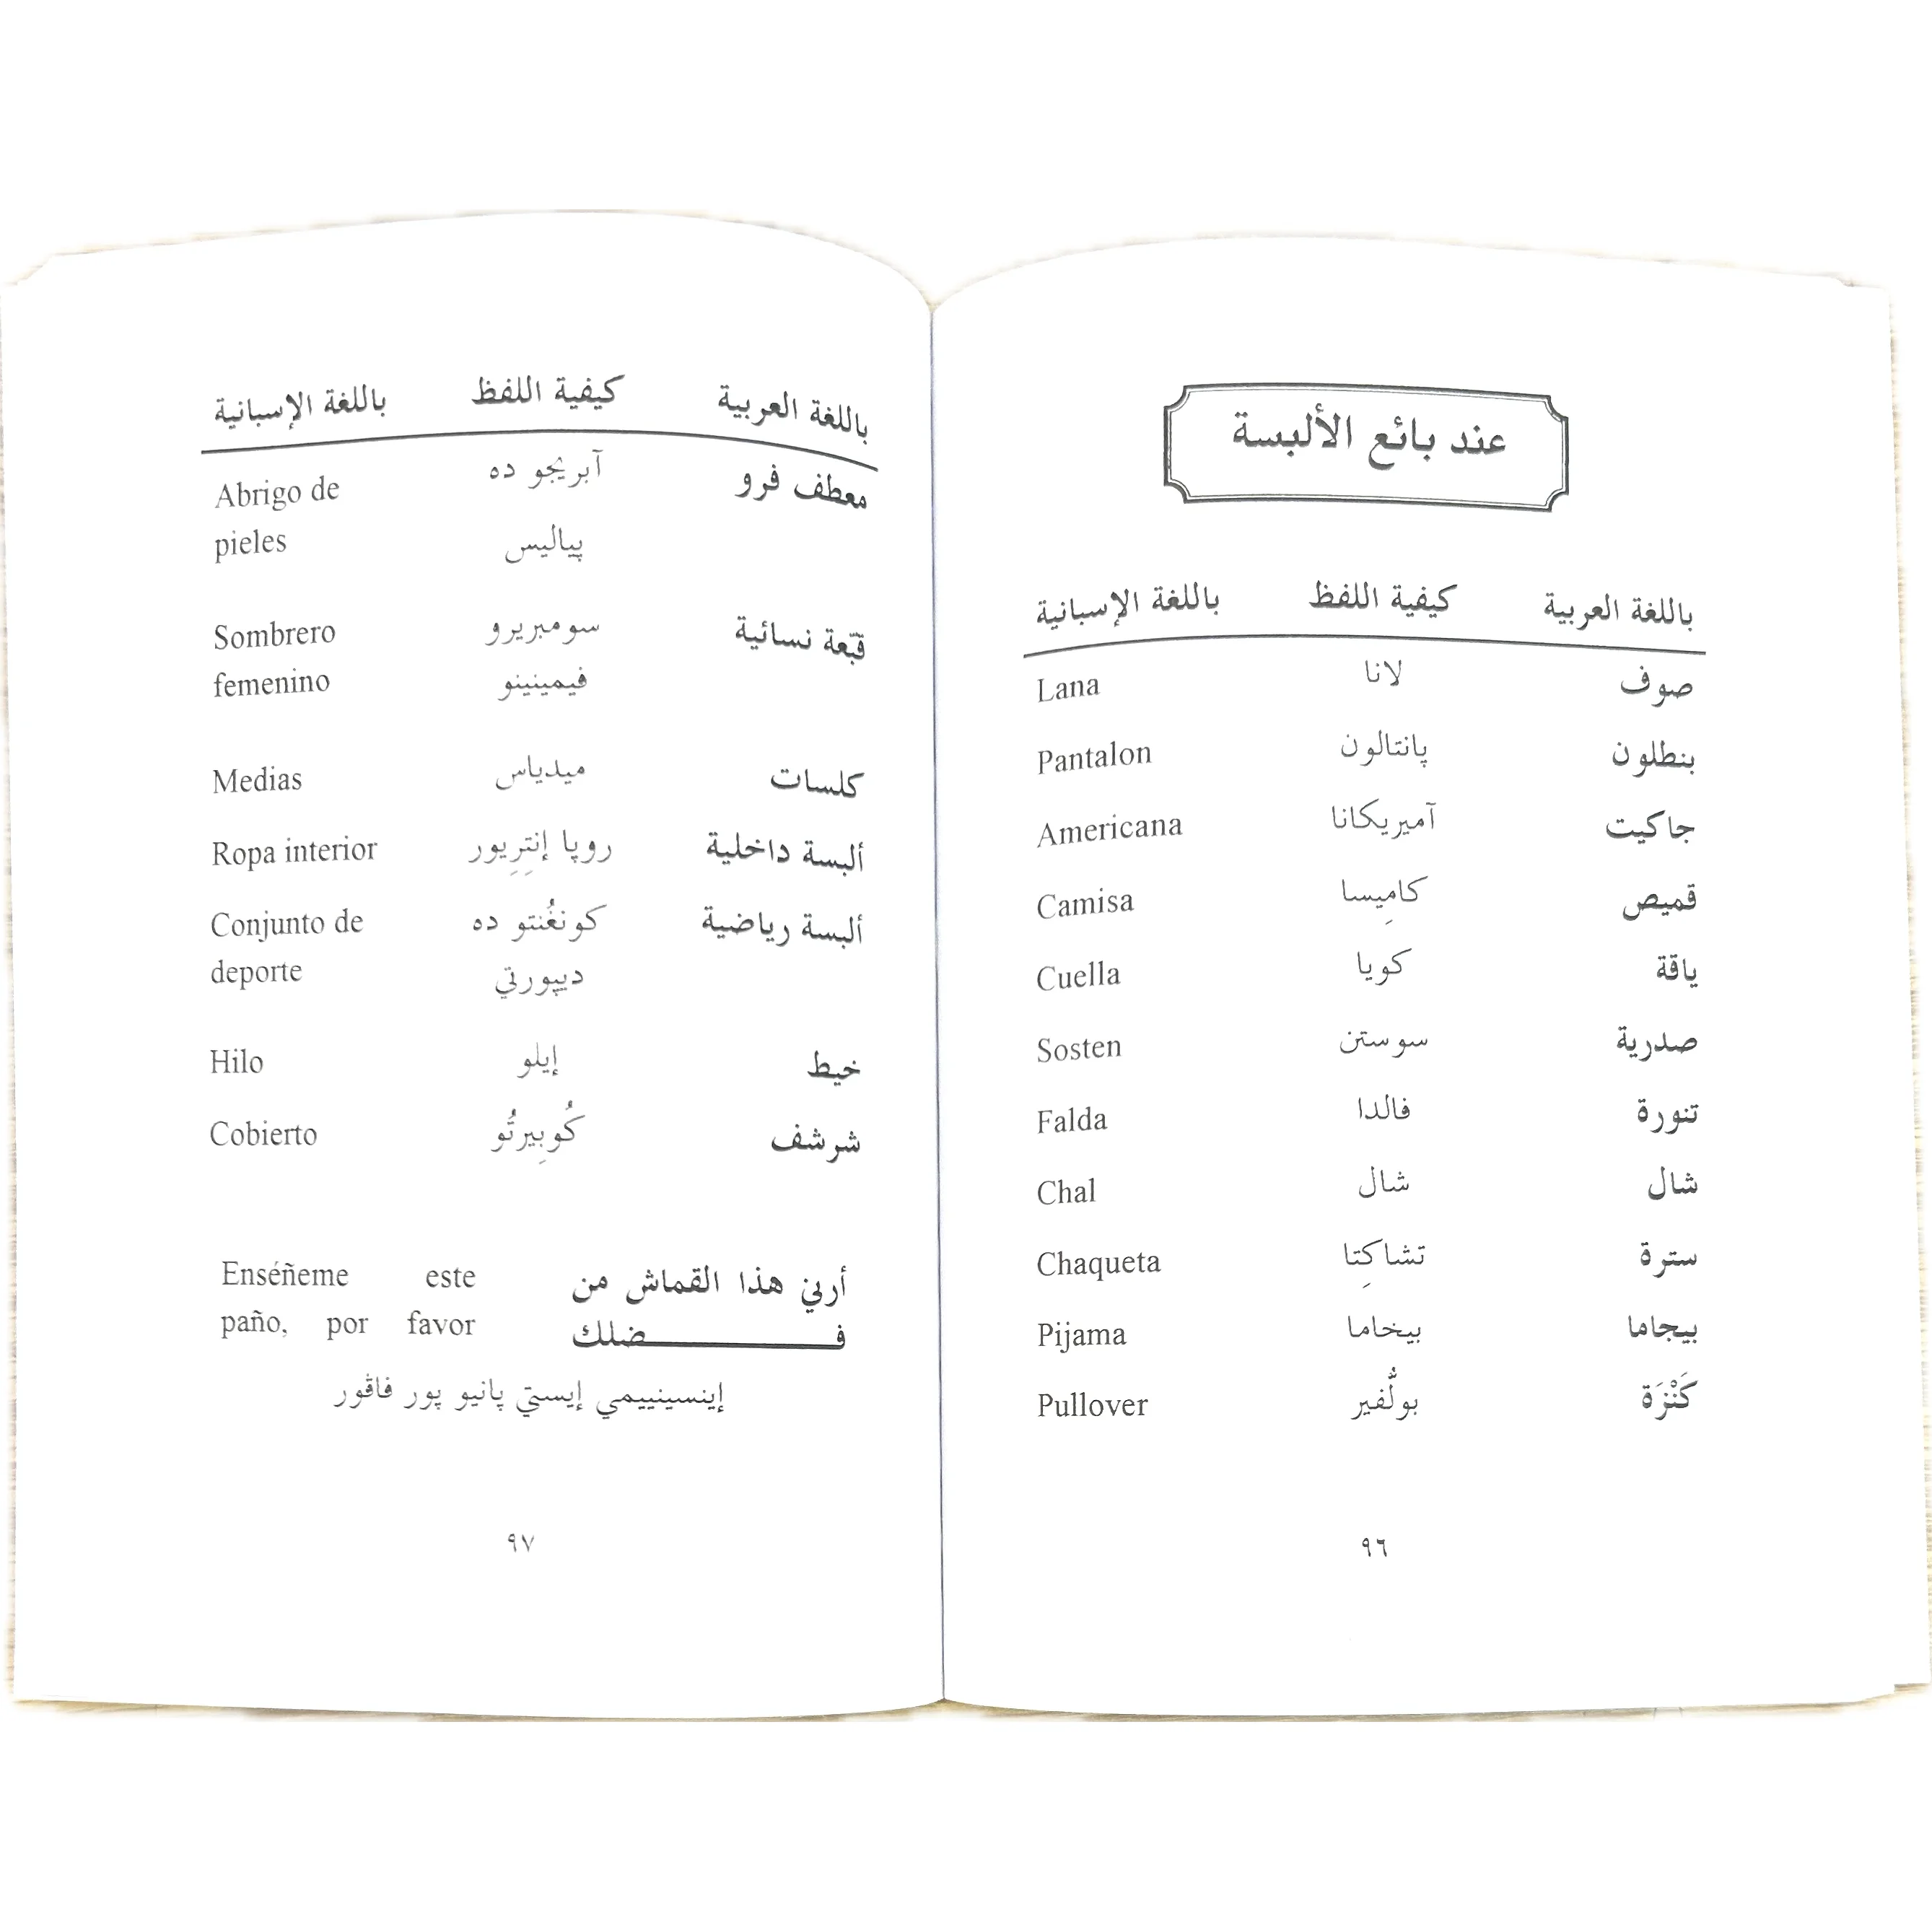 عند بائع الألبسة
باللغة العربية كيفية اللفظ باللغة الإسبانية
صوف لانا Lana
بنطلون پانتالون Pantalon
جاكيت آميريكانا Americana
قميص كامِيسا Camisa
ياقة كويا Cuella
صدرية سوستن Sosten
تنورة فالدا Falda
شال شال Chal
سترة تشاكِتا Chaqueta
بيجاما بيخاما Pijama
كَنْزَة بولُّفير Pullover
٩٦
باللغة العربية كيفية اللفظ باللغة الإسبانية
معطف فرو آبريجو ده Abrigo de
پياليس pieles
قبّعة نسائية سومبريرو Sombrero
فيمينينو femenino
كلسات ميدياس Medias
ألبسة داخلية روپا إنتِرِيور Ropa interior
ألبسة رياضية كونغُنتو ده Conjunto de
ديپورتي deporte
خيط إيلو Hilo
شرشف كُوبِيرتُو Cobierto
أرني هذا القماش من Enséñeme este
فـــضلك paño, por favor
إينسينييمي إيستي پانيو پور فاڤور
٩٧